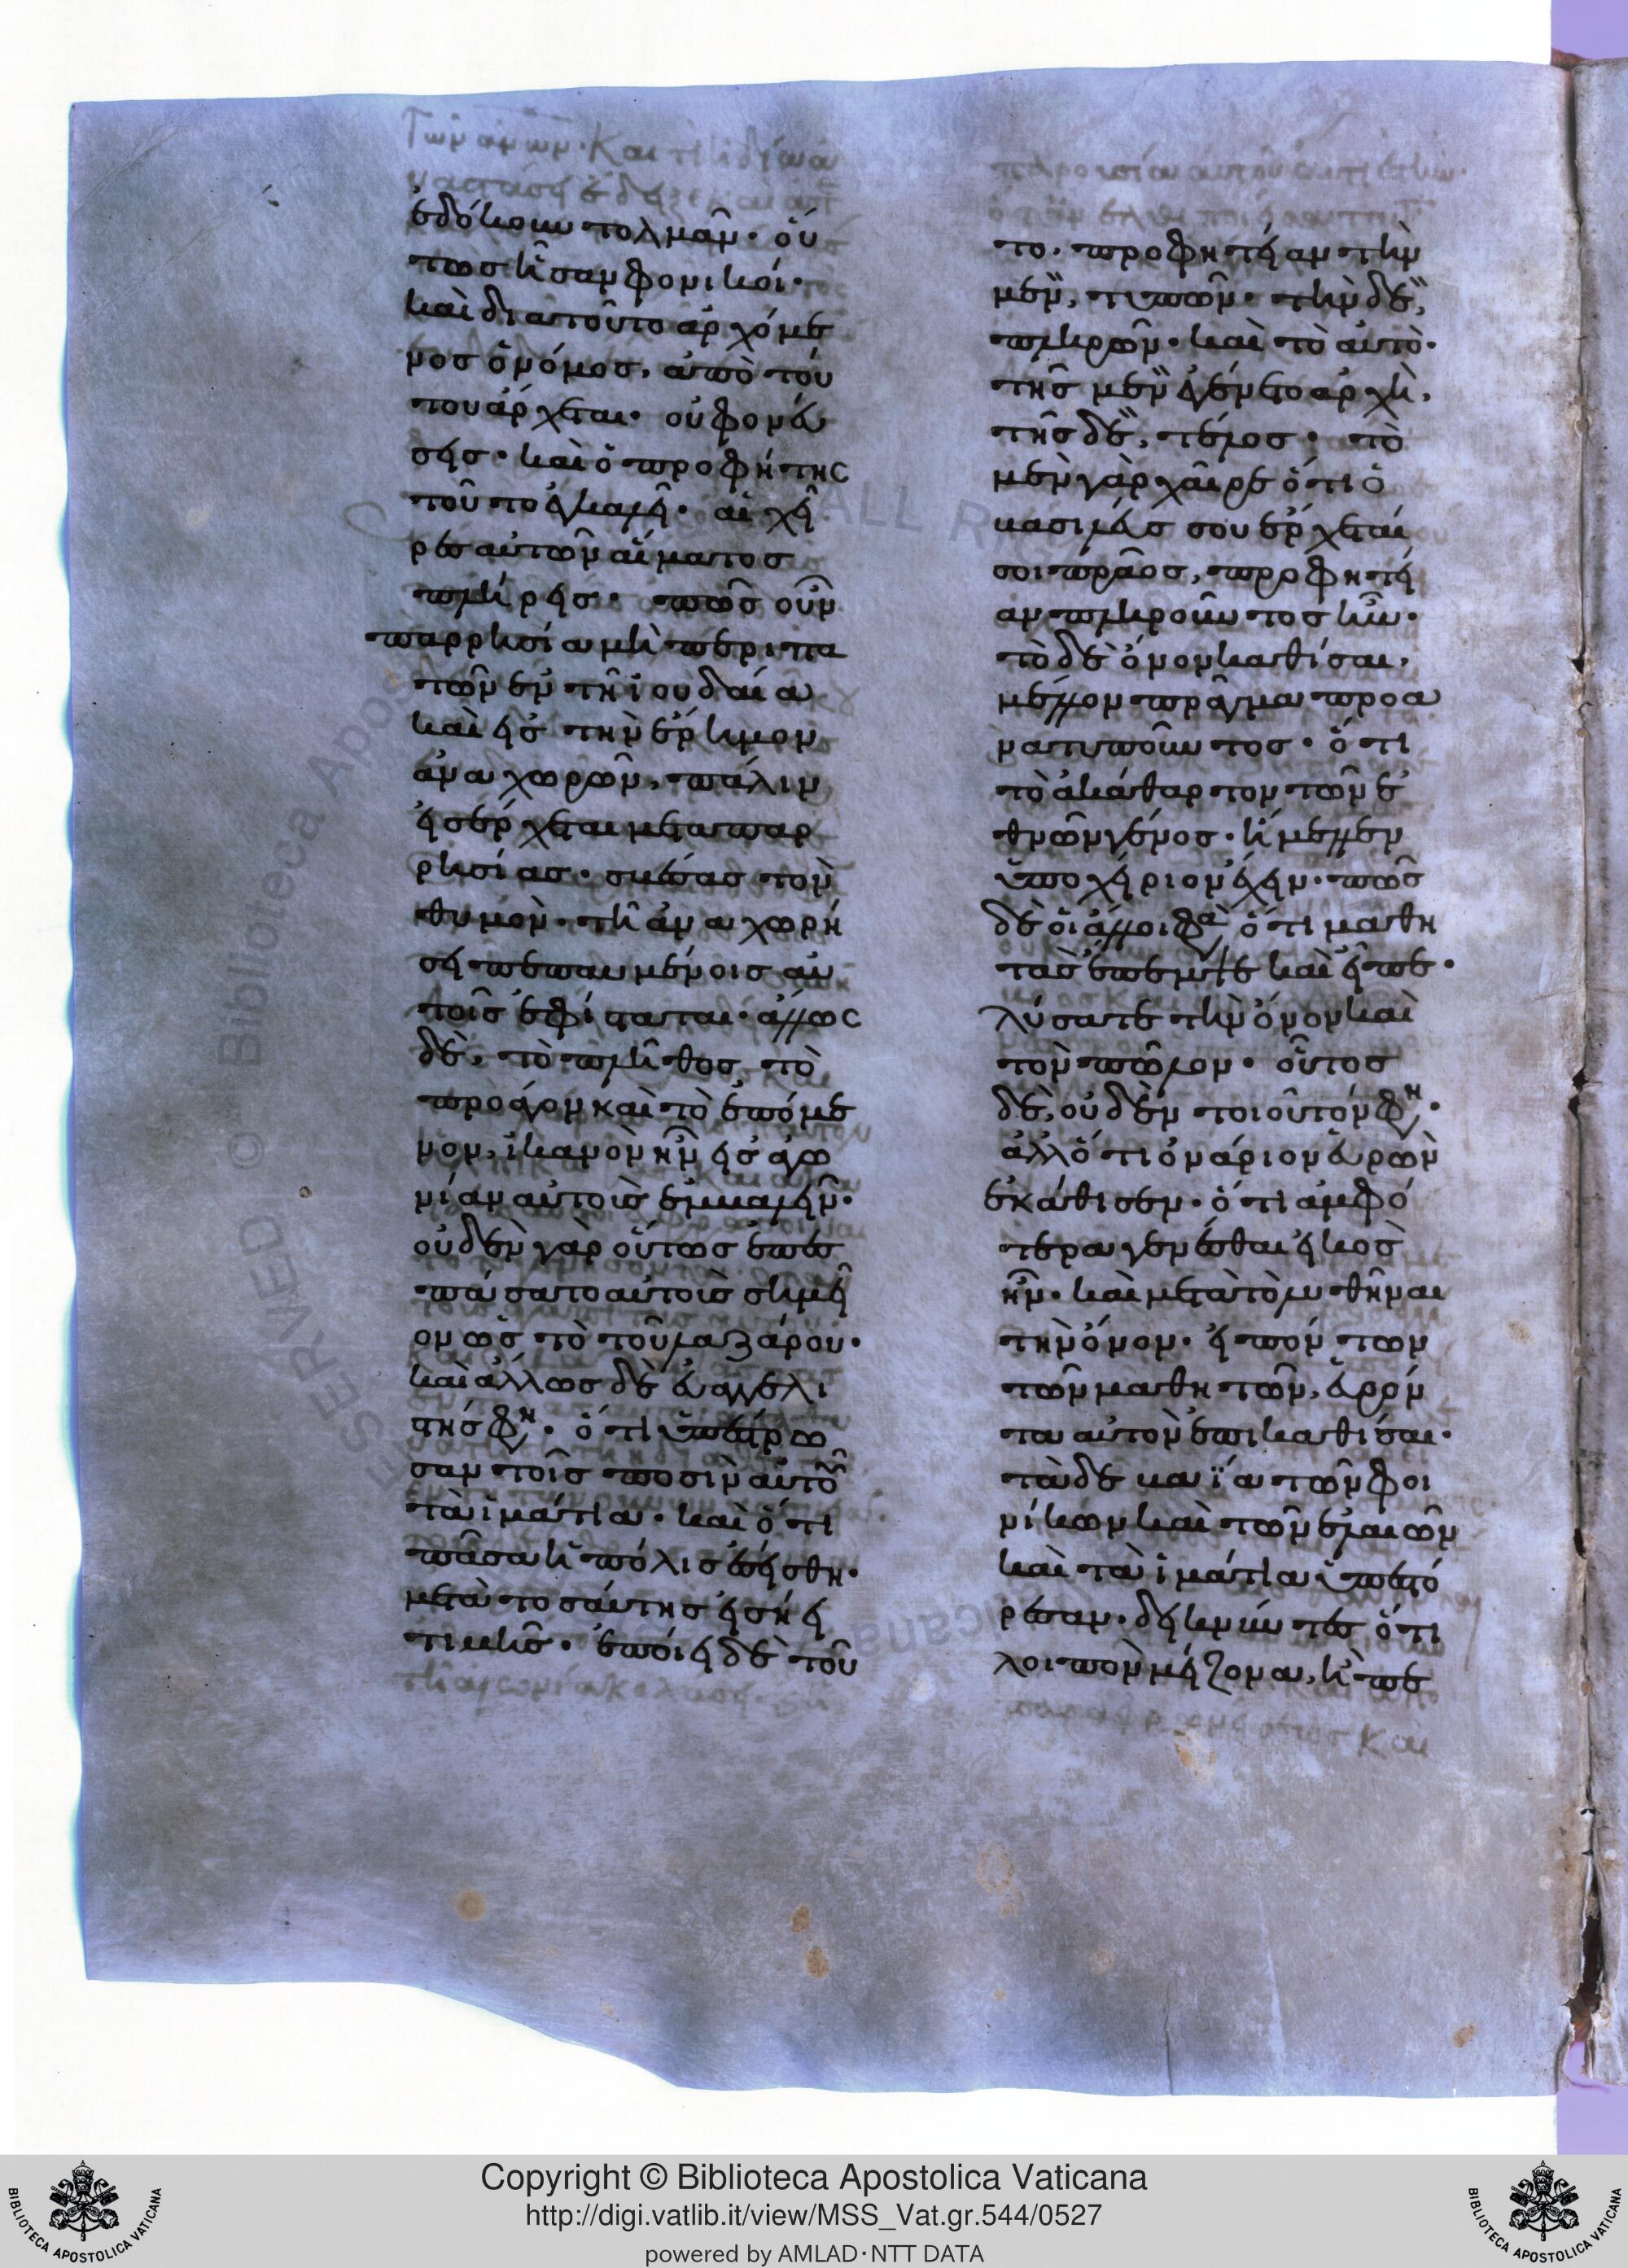 ἐδόκουν τολμᾶν· οὕ
τως ἦσαν φονικοί·
καὶ διατοῦτο ἀρχόμε
νος ὁ νόμος, ἀπὸ τού
του ἄρχεται· οὐ φονεύ
σεις· καὶ ὁ προφήτης
τοῦτο ἐγκαλεῖ· αἱ χεῖ
ρες αὐτῶν αἵματος
πλήρεις· πῶς οὖν
παρρησία μὴ περιπα
τῶν ἐν τῆ ἰουδαία
καὶ εἰς τὴν ἔρημον
ἀναχωρῶν, πάλιν
εἰσέρχεται μεταπαρ
ρησίας· σβέσας τὸν
θυμὸν· τῆ ἀναχωρή
σει πεπαυμένοις αὐ
τοῖς ἐφίσταται· ἄλλως
δὲ, τὸ πλῆθος τὸ
προάγον καὶ τὸ ἑπόμε
νον, ἱκανὸν ἦν εἰς ἀγω
νίαν αὐτοὺς ἐμβαλεῖν·
οὐδὲν γὰρ οὕτως ἐπεσ
πάσατο αὐτοὺς σημεῖ
ον ὡς τὸ τοῦ λαζάρου·
καὶ ἄλλως δὲ εὐαγγελι
στής φη· ὅτι ὑπέστρω
σαν τοῖς ποσὶν αὐτοῦ
τὰ ἱμάτια· καὶ ὅτι
πᾶσα ἡ πόλις ἐσείσθη·
μετὰ τοσαύτης εἰσήει
τιμῆς· ἐποίει δὲ τοῦ
το, προφητείαν τὴν
μὲν, τυπῶν· τὴν δὲ,
πληρῶν· καὶ τὸ αὐτὸ·
τῆς μὲν ἐγένετο ἀρχὴ,
τῆς δὲ, τέλος· τὸ
μὲν γὰρ χαῖρε ὅτι ὁ
βασιλεύς σου ἔρχεταί
σοι πρᾶος, προφητεί
αν πληροῦντος ἦν·
τὸ δὲ ὄνον καθίσαι,
μέλλον πρᾶγμα προα
νατυποῦντος· ὅτι
τὸ ἀκάθαρτον τῶν ἐ
θνῶν γένος· ἤμελλεν
ὑποχείριον ἔχειν· πῶς
δὲ οἱ ἄλλοι φα ὅτι μαθη
τὰς ἔπεμψε καὶ εἶπε·
λύσατε τὴν ὄνον καὶ
τὸν πῶλον· οὗτος
δὲ, οὐδὲν τοιοῦτόν φη·
ἀλλ' ὅτι ὀνάριον εὑρὼν
ἐκάθισεν· ὅτι ἀμφό
τερα γενέσθαι εἰκὸς
ἦν· καὶ μετὰ τὸ λυθῆναι
τὴν ὄνον· ἀγόντων
τῶν μαθητῶν, εὑρόν
τα αὐτὸν ἐπικαθίσαι·
τὰ δὲ βαΐα τῶν φοι
νίκων καὶ τῶν ἐλαιῶν
καὶ τὰ ἱμάτια ὑπεστό
ρεσαν· δεικνύντες ὅτι
λοιπὸν μείζονα, ἢ πε
Copyright © Biblioteca Apostolica Vaticana
http://digi.vatlib.it/view/MSS_Vat.gr.544/0527
powered by AMLAD·NTT DATA